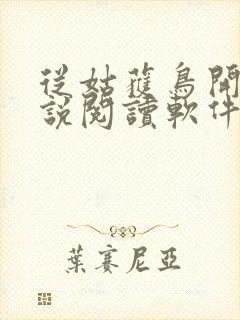 從姑蒦鳥開
說閱讀軟件
葉賽尼亞